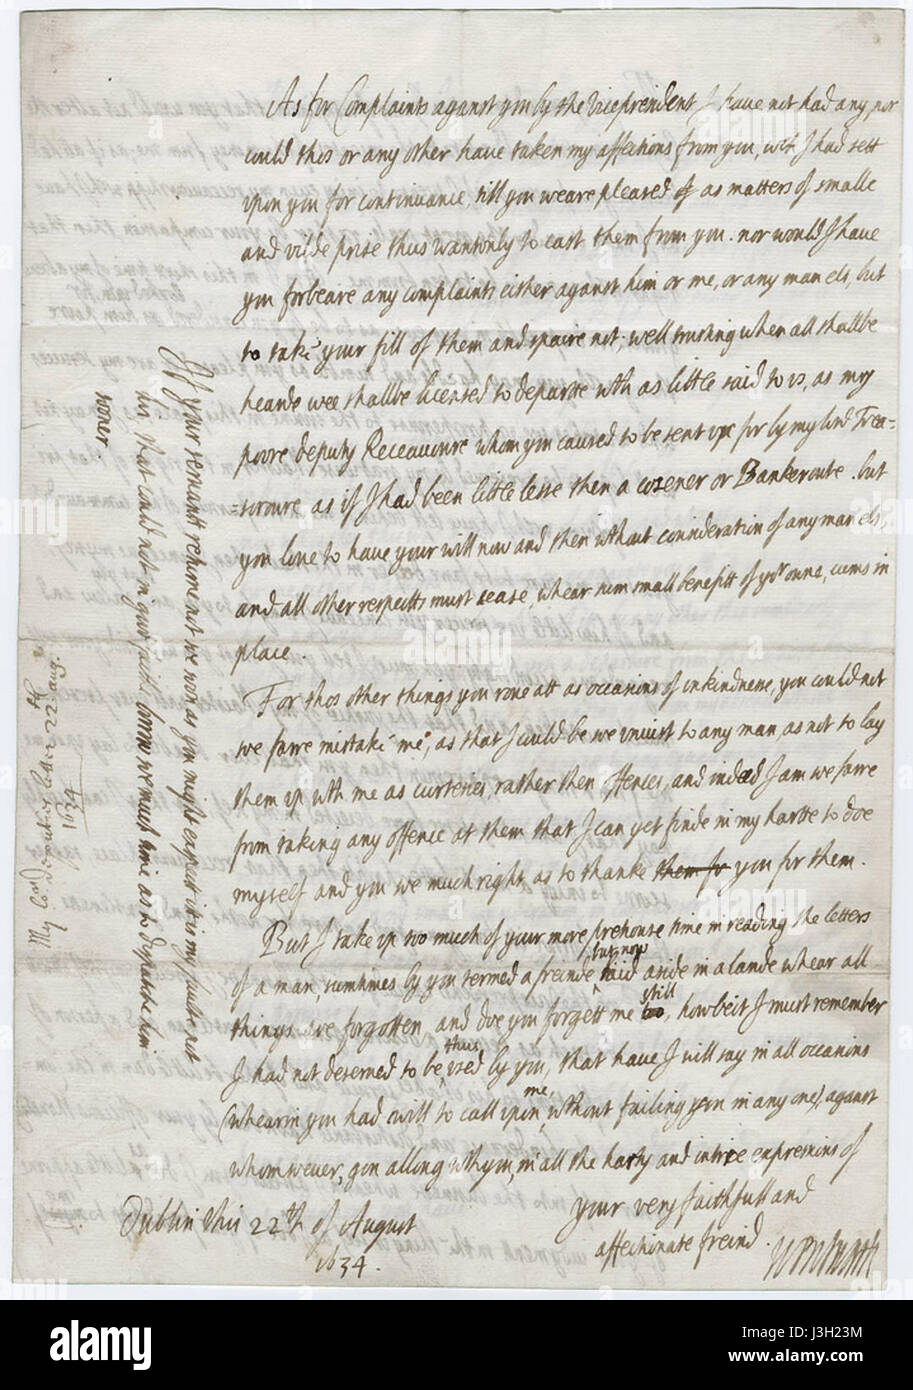 As for Complaints against you by the Vicepresident I have not had any, nor
could this or any other have taken my affections from you, wch I had sett
upon you for continuance, till you weare pleased as matters of smalle
and vilde prise thus wantonly to cast them from you. nor would I have
you forbeare any complaints either against him or me, or any man els, but
to take your fill of them and spaire not; well trusting when all shalbe
hearde wee shalbe licensed to departe wth as little said to us, as my
poore deputy Receavoure whom you caused to be sent up for by my lord Trea=
=soroure as if I had been little lesse then a cosener or Bankeroute. but
you love to have your will now and then without consideration of any man els,
and all other respects must cease, whear sum small benefitt of yor owne, cums in
place.
For thos other things you rove att as occasions of unkindnesse, you could not
soe farre mistake me, as that I could be soe uniust to any man, as not to lay
them up wth me as curtesies, rather then offences, and indeed I am soe farre
from taking any offence at them that I can yet finde in my harte to doe
myself and you soe much right, as to thanke them for you for them.
But I take up too much of your more pretiouse time in reading the letters
of a man, sumtimes by you termed a freinde, but now laid aside in a lande whear all
things are forgotten, and doe you forgett me too still, howbeit I must remember
I had not deserved to be thus used by you, that have I will say in all occasions
(whearin you had will to call upon me, without failing you in any one), against
whomsoever, gon allong wth you, in all the harty and intire expressions of
Your very faithfull and
affectionate freind.
Wentworth
Dublin this 22th of August
1634.
If your servantt returne not soe soon as you might expect it is my faulte not
his, that could not in good faith borrow soe much time as to dispatche him
sooner.
My Lord Deputies letter 22th Aug.
1634
alamy
alamy stock photo
J3H23M
www.alamy.com